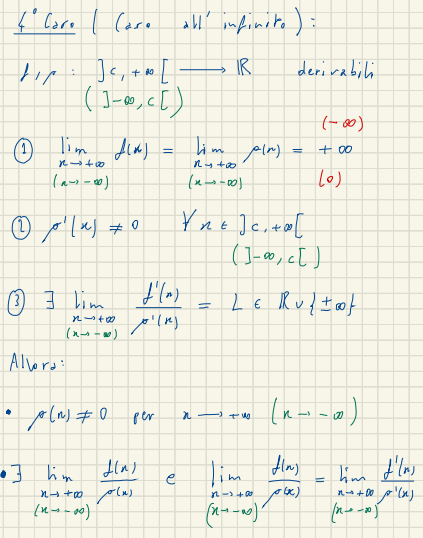 4° Caso (Caso all'infinito):
f, g : ]c, +∞[ → ℝ derivabili
( ]-∞, c[ )
(-∞)
① lim f(x) = lim g(x) = +∞
x→+∞ x→+∞
(x→-∞) (x→-∞) (0)
② g'(x) ≠ 0 ∀ x ∈ ]c, +∞[
( ]-∞, c[ )
③ ∃ lim f'(x)/g'(x) = L ∈ ℝ ∪ {±∞}
x→+∞
(x→-∞)
Allora:
• g(x) ≠ 0 per x → +∞ (x → -∞)
• ∃ lim f(x)/g(x) e lim f(x)/g(x) = lim f'(x)/g'(x)
x→+∞ x→+∞ x→+∞
(x→-∞) (x→-∞) (x→-∞)